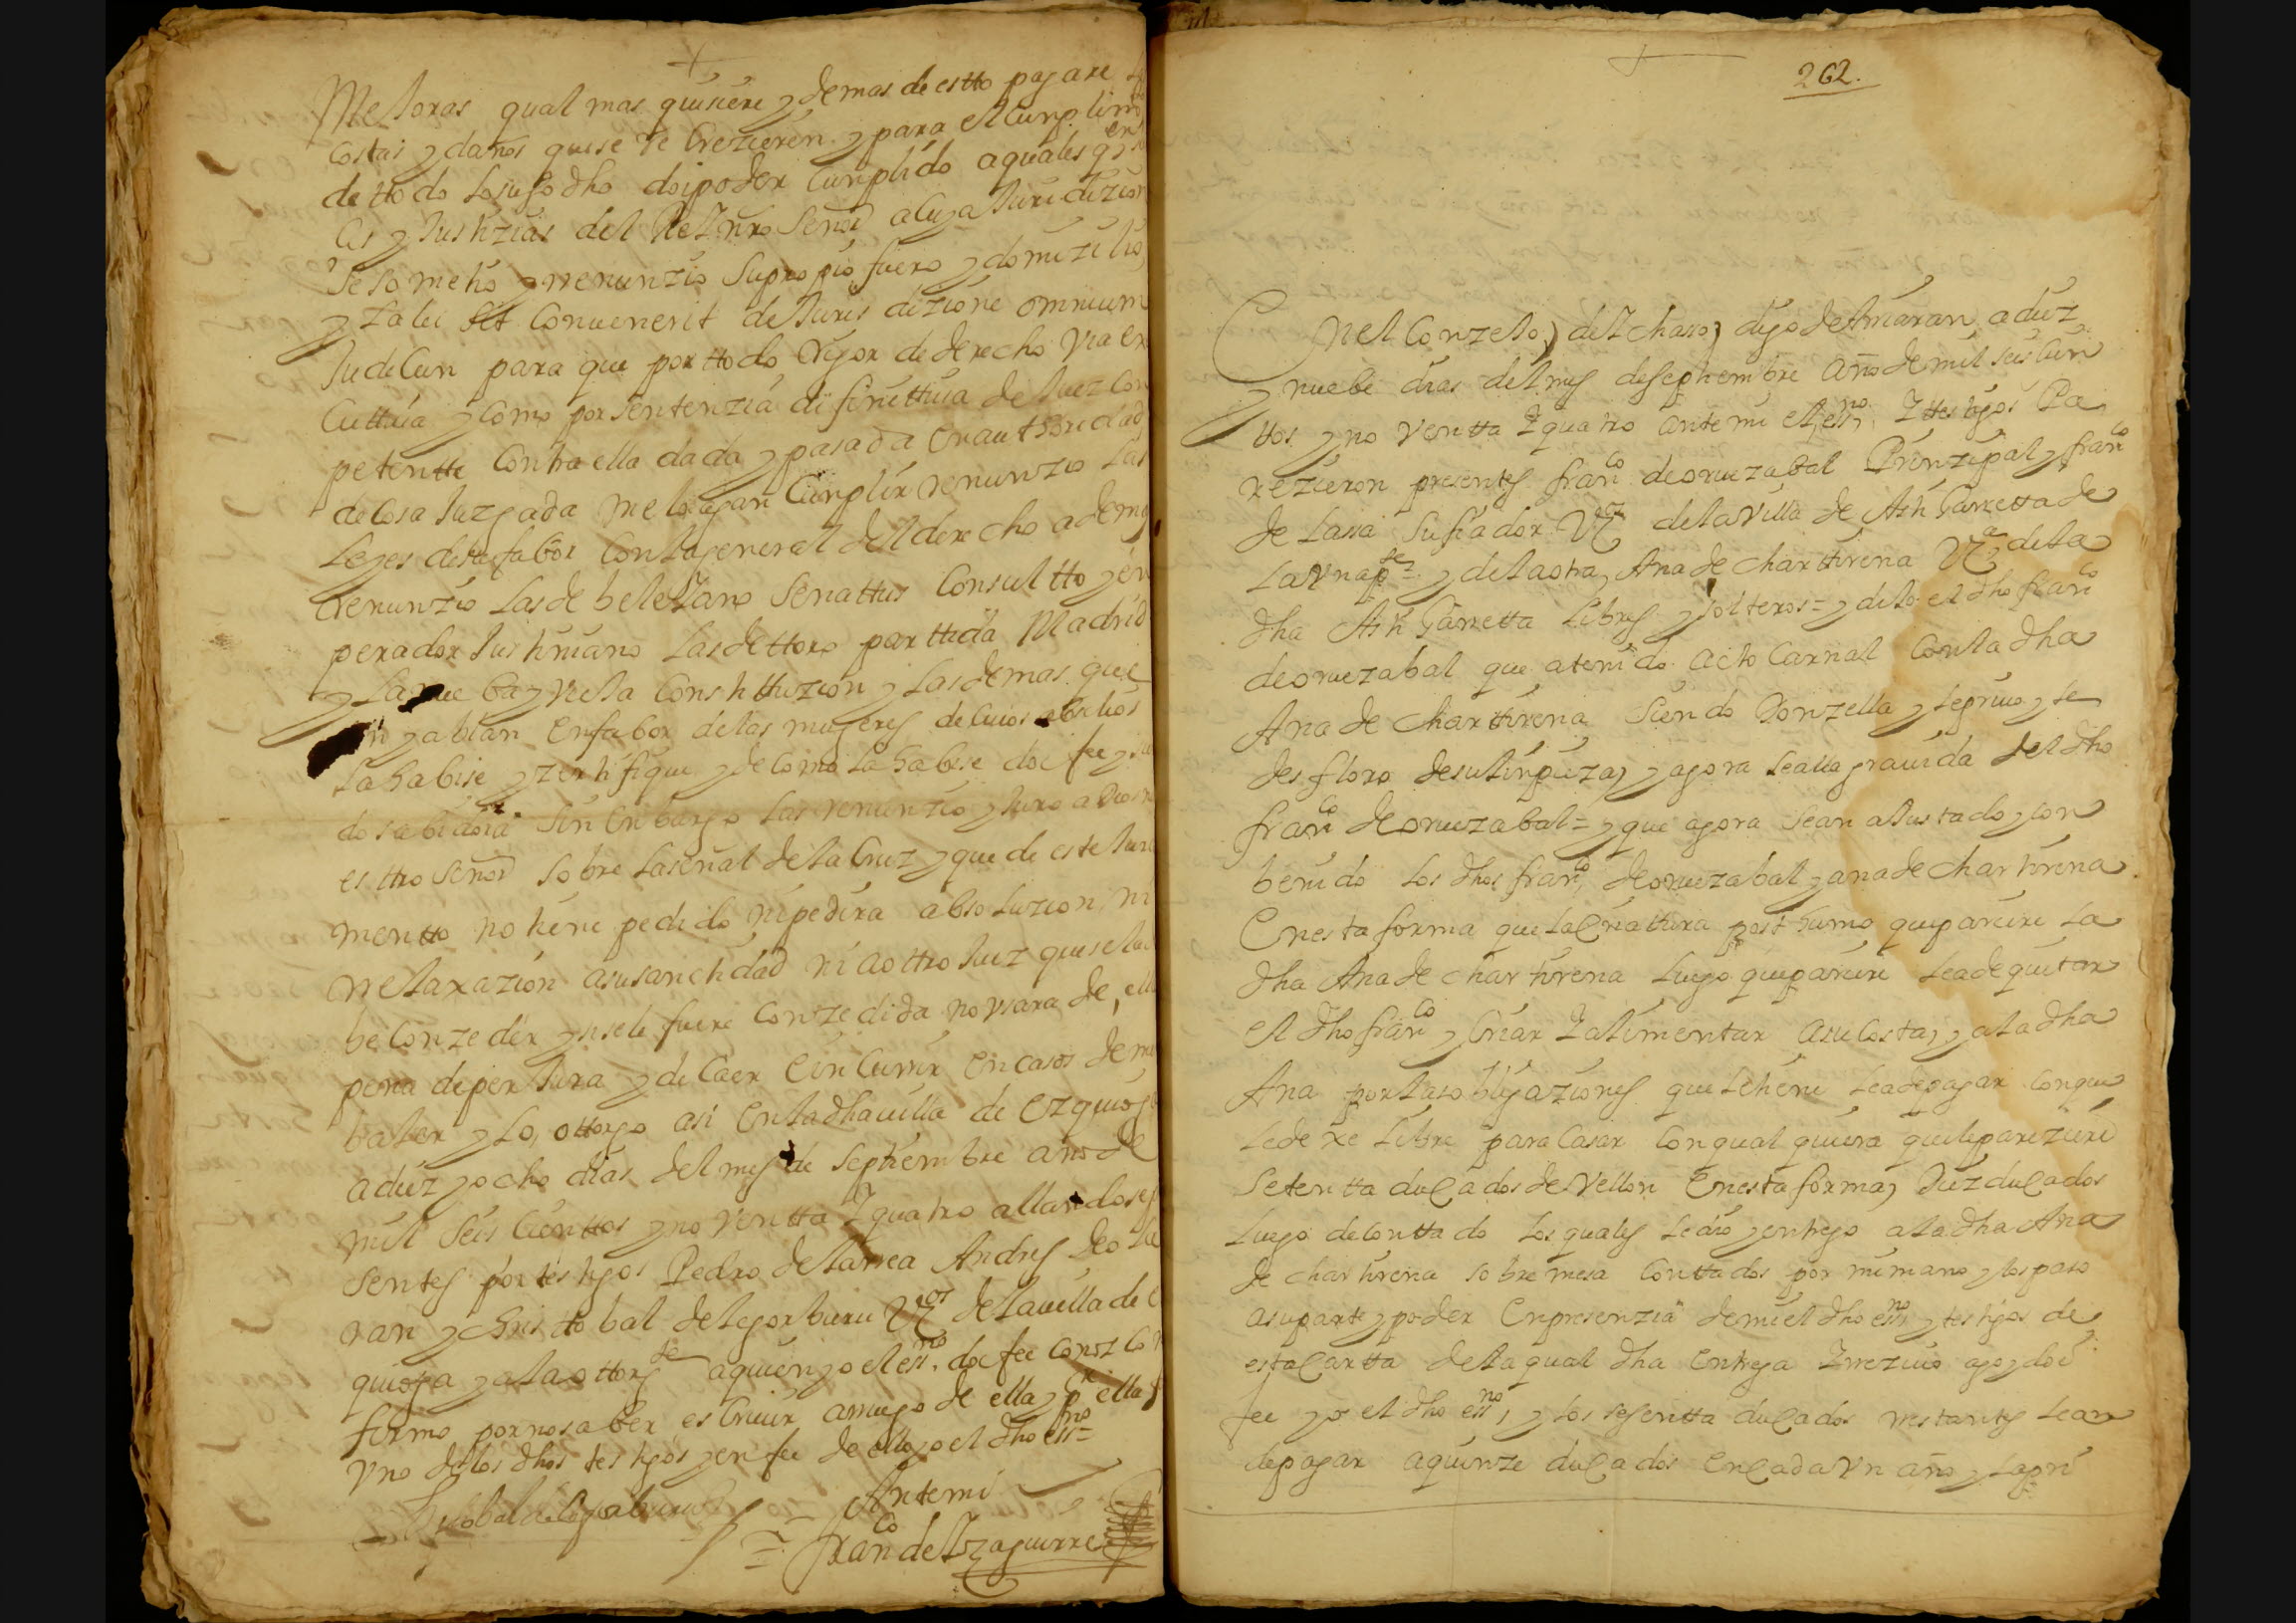 Mejoras qual mas quisiere y demas de estto pagare
costas y daños que se le Crezieren y para el Cunplim
de ttodo lo suso dho doi poder Cunplido a quales q
es y Justizias del Rei nro Señor a cuya Juridizion
se sometio y rrenunzio su propio fuero y domizilio
y la lei sit Conuenerit de Jurisdizione omnium
Judicun para que por ttodo Rigor de derecho Via ex
Cuttiua y como por sentenzia difinittiua de Juez Con
petentte Contra ella dada y pasada en authoridad
de Cosa Juzgada me lo agan Cunplir renunzio las
Leyes de su fabor Con la general del derecho ademas
renunzio las de beleyano Senattus Consultto y en
perador Justiniano las de ttoro parttida Madrid
y la nueba y vieja Constittuzion y las demas que
ablan en fabor de las mugeres de cuios absilios
la habise y zertifique y de como la habise doi fee y
do sabidora sin enbargo las renunzio y Juro a Dios n
esttro Señor sobre la señal de la Cruz y que de este Jura
mentto no tiene pedido ni pedira absoluzion ni
relaxazion a su santidad ni a ottro Juez que se la de
be Conzeder y si se le fuere Conzedida no vsara de ella
pena de perjura y de Caer e in Currir en casos de me
baler y lo ottorgo asi en la dha uilla de ezquiog
a diez y ocho dias del mes de Septiembre año de
mill Seis Cienttos y no Ventta y quatro allandose
sentes por testigos Pedro de larrea Andres de ola
ran y Chris ttobal de legorburu Vos de la uilla de e
quioga y a la ottorgte a quien yo el essno doi fee Conozco
firmo por no saber escriuir a rruego de ella y pr ella
vno de los dhos testigos y en fee de ello yo el dho essno =
Xptobal de legorburu
Antemi
Franco de Izaguirre
262.
En el Conzejo del chaso digo de Amaran a diez
y nuebe dias del mes de Septiembre año de mil seis cien
ttos y no ventta y quatro ante mi el essno y ttestigos Pa
rezieron presentes franco de oruezabal Prinzipal y franco
de lasa su fiador Vos de la Villa de Astigarretta de
la vna pte y de la otra Ana de charttirena Vza de la
dha Astigarretta Libres y solteros = y dijo el dho franco
de oruezabal que a tenido acto Carnal Con la dha
Ana de charttirena siendo Donzella y le priuo y le
desfloro de su linpieza y agora se alla grauida del dho
franco de oruezabal = y que agora se an ajustado y con
benido los dhos franco de oruezabal y ana de chartirena
en esta forma que la Criattura posthumo que pariere la
dha Ana de chartirena luego que pariere le a de quitar
el dho franco y criar y alimentar a su Costa y a la dha
Ana por las obligaziones que le tiene le a de pagar con que
le deje libre para Casar Con qual quiera que le pareziere
Setentta ducados de Vellon en esta forma, Diez ducados
luego de Conttado los quales le dio y entrego a la dha Ana
de chartirena sobre mesa Conttados por mi mano y los paso
a su parte y poder en presenzia de mi el dho essno y testigos de
esta Cartta de la qual dha entrega y rreziuo yo doi
fee yo el dho essno, y los sesentta ducados restantes le an
de pagar a quinze ducados en Cada vn año y la pri